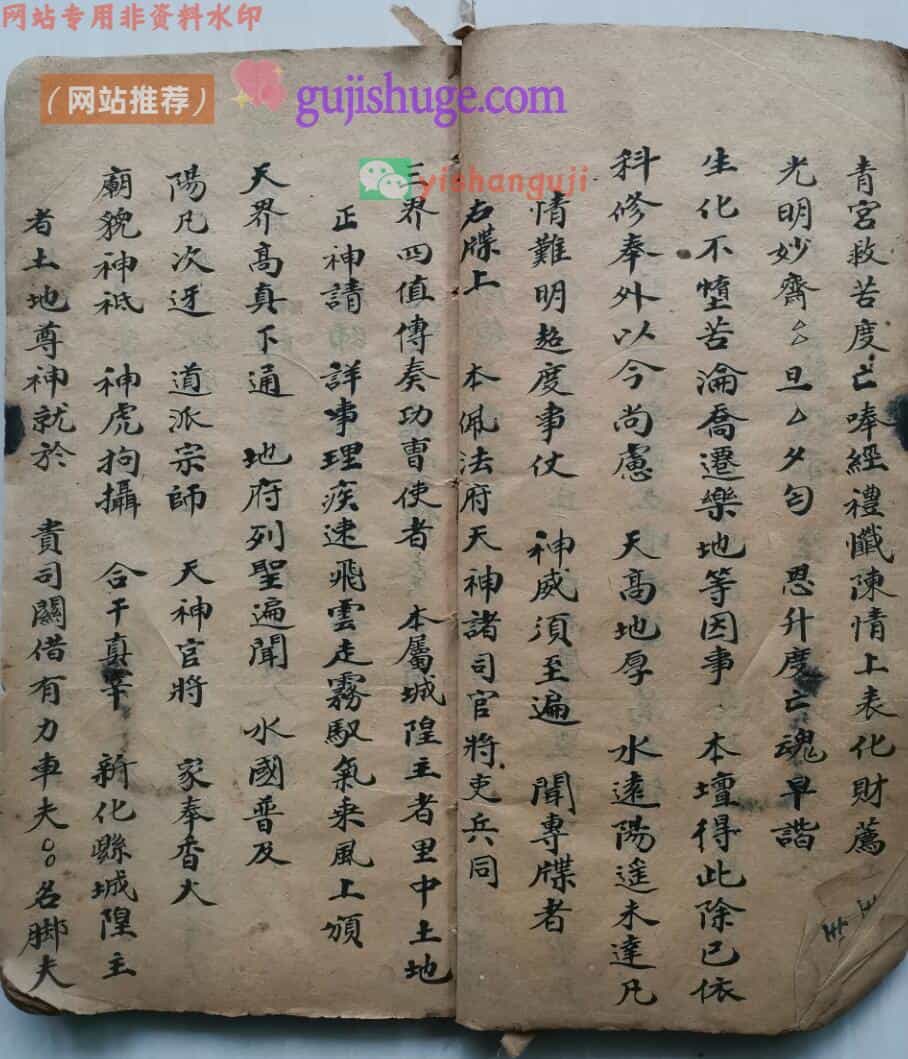 网站专用非资料水印
（网站推荐）
gujishuge.com
yishanguji
青宮救苦度亡唪經禮懺陳情上表化財薦
光明妙齋 旦 夕匄 恩升度亡魂早諧
生化不堕苦淪喬遷樂地等因事 本壇得此除已依
科修奉外以今尚慮 天高地厚 水遠陽遥未達凡
情難明超度事仗 神威須至遍 聞專牒者
右牒上 本佩法府天神諸司官將吏兵同
三界四值傳奏功曹使者 本屬城隍主者里中土地
正神請 詳事理疾速飛雲走霧馭氣乘風上頒
天界高真下通 地府列聖遍聞 水國普及
陽凡次迓 道派宗師 天神官將 家奉香火
廟貌神祇 神虎拘攝 合干真宰 新化縣城隍主
者土地尊神就於 貴司關借有力車夫〇〇名脚夫